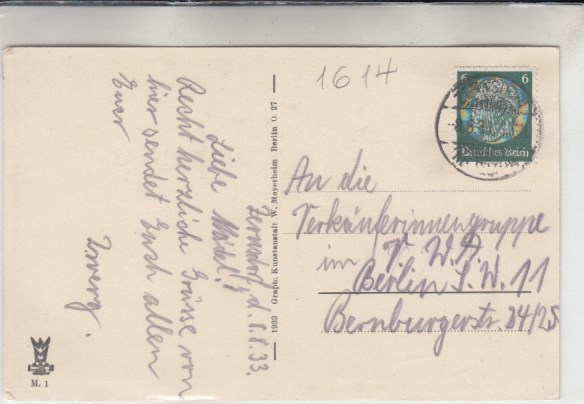 1614
6 6
Deutsches Reich
An die
Verkäuferinnengruppe
im V. W. A.
Berlin S.W. 11
Bernburgerstr. 24/25
d. 6.8.33.
Liebe Mädel!
Recht herzliche Grüsse von
hier sendet Euch allen
Euer
Zwerg.
1933 Graph. Kunstanstalt W. Meyerheim Berlin O. 27
M. 1